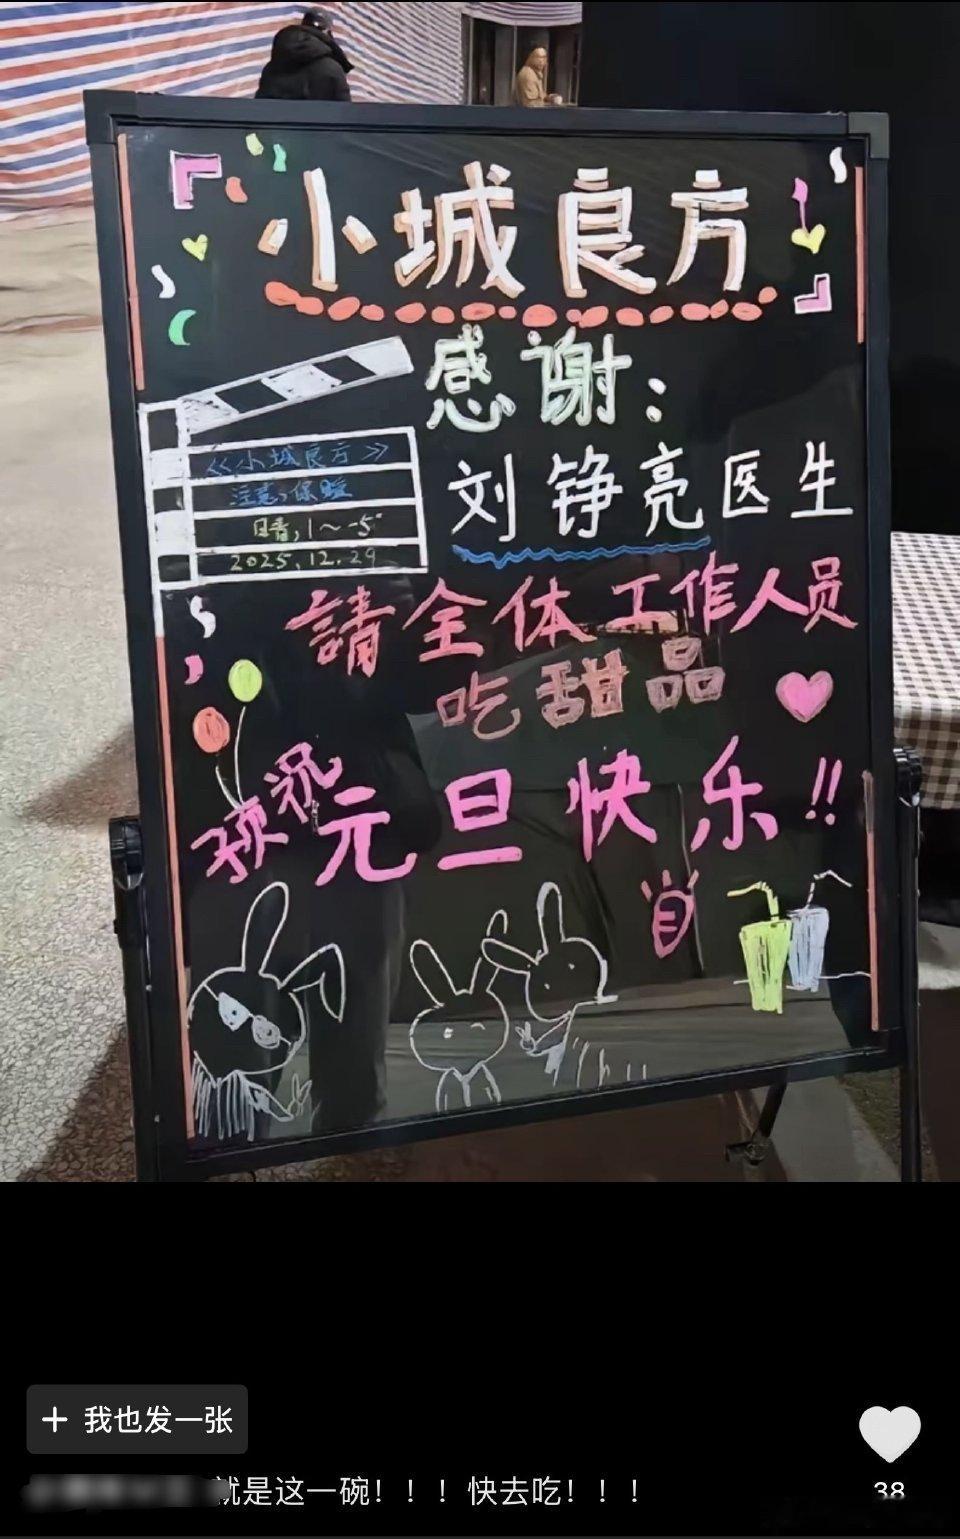 小城良方
感谢：
刘铮亮医生
《小城良方》
注意:保暖
日青,1～-5°
2025.12.29
請全体工作人员
吃甜品
预祝
元旦快乐!!
+ 我也发一张
就是这一碗！！！快去吃！！！
38